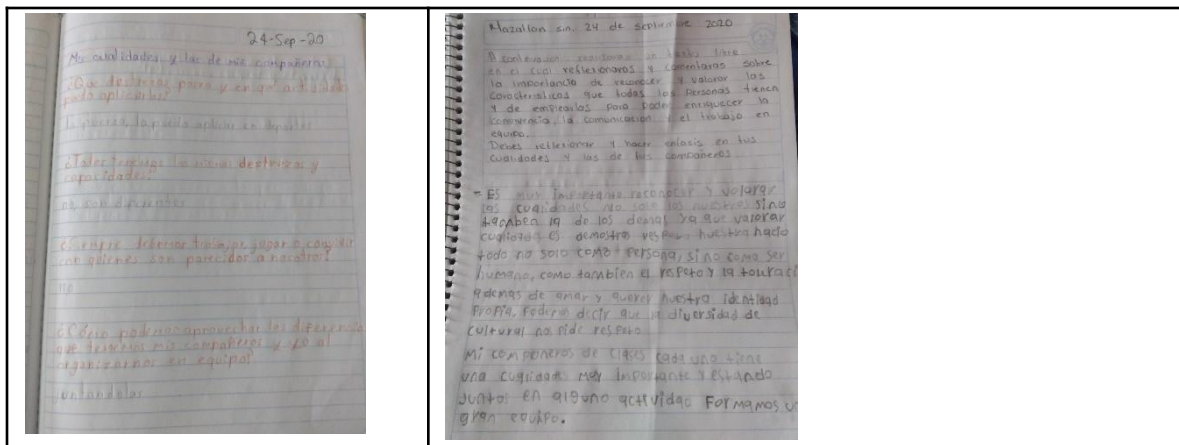 24-Sep-20
Mis cualidades y las de mis compañeros
¿Que destrezas poseo y en qué actividades
puedo aplicarlas?
la puedo aplicar en deportes
¿Todos tenemos la mismas destrezas y
capacidades?
no son diferentes
¿Siempre debemos trabajar, jugar o convivir
con quienes son parecidos a nosotros?
no
¿Cómo podemos aprovechar las diferencias
que tenemos mis compañeros y yo al
organizarnos en equipo?
juntandolas
Mazatlan sin. 24 de septiembre 2020
A continuacion un texto libre
en el cual reflexionaras y comentaras sobre
la importancia de reconocer y valorar las
caracteristicas que todas las personas tienen
y de emplearlas para poder enriquecer la
convivencia, la comunicacion y el trabajo en
equipo.
Debes reflexionar y hacer enfasis en tus
cualidades y las de tus compañeros
- Es muy importante reconocer y valorar
las cualidades no solo las nuestras sino
tambien la de los demas ya que valorar
cualidades es demostrar respeto hacia
todo no solo como persona, sino como ser
humano, como tambien el respeto y la
ademas de amar y querer nuestra identidad
propia. Podero decir que la diversidad de
cultural no pide respeto
Mi compañeros de clases cada uno tiene
una cualidades muy importante y estando
juntos en alguno actividad Formamos un
gran equipo.